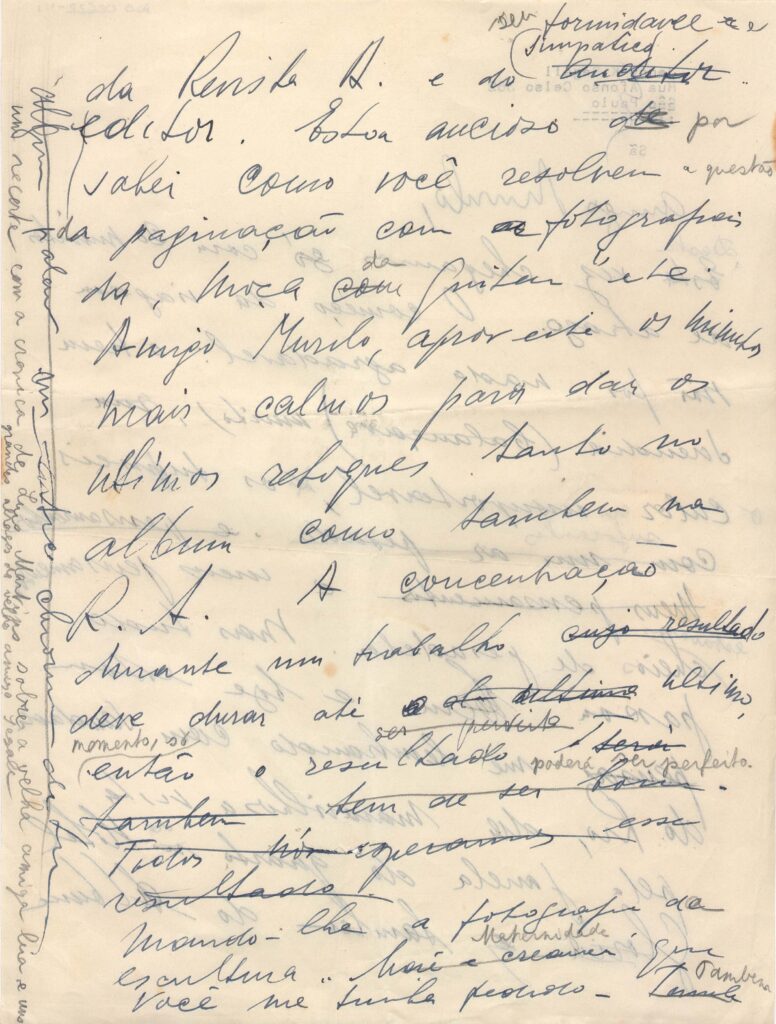 seu formidavel e
simpatico
da Revista A. e do auditor
editor. Estou ancioso de por
saber como você resolveu a questão
da paginação com as fotografias
da, moça com da Guitar etc.
Amigo Murilo, aproveite os minutos
mais calmos para dar os
ultimos retoques tanto no
album como tambem na
R. A. A concentração
durante um trabalho cujo resultado
deve durar até o ultimo ultimo,
momento, só ser perfeito
então o resultado será poderá ser perfeito.
tambem tem de ser bom.
Todos nós esperamos esse
resultado.
Mando-lhe a fotografia da
Maternidade
escultura "Mãe e creança" que
Você me tinha pedido – Tambem
um recorte com a cronica de Luis Martins sobre a velha amiga lua e uns
grandes abraços do velho amigo Segall